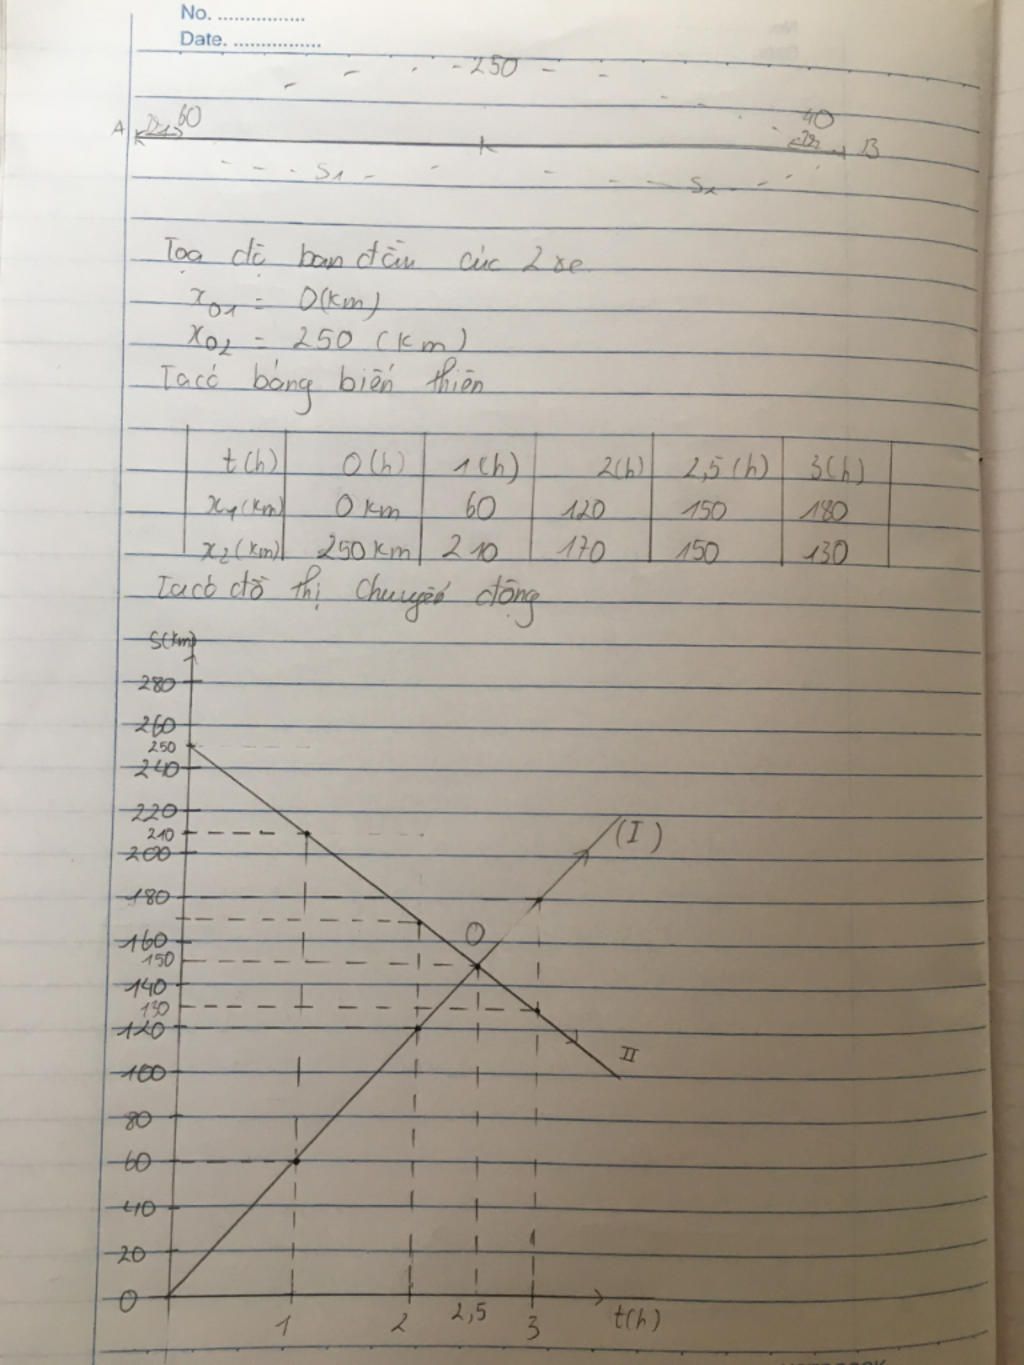 No. ................
Date. ................
250
A 60 40 B
S1 S2
Tọa độ ban đầu của 2 xe
x01 = 0(km)
x02 = 250 (km)
Ta có bảng biến thiên
t(h) 0(h) 1(h) 2(h) 2,5(h) 3(h)
x1(km) 0 km 60 120 150 180
x2(km) 250 km 210 170 150 130
Ta có đồ thị chuyển động
S(km)
280
260
250
240
220
210
200
(I)
180
O
160
150
140
130
120
II
100
80
60
40
20
0
1 2 2,5 3 t(h)